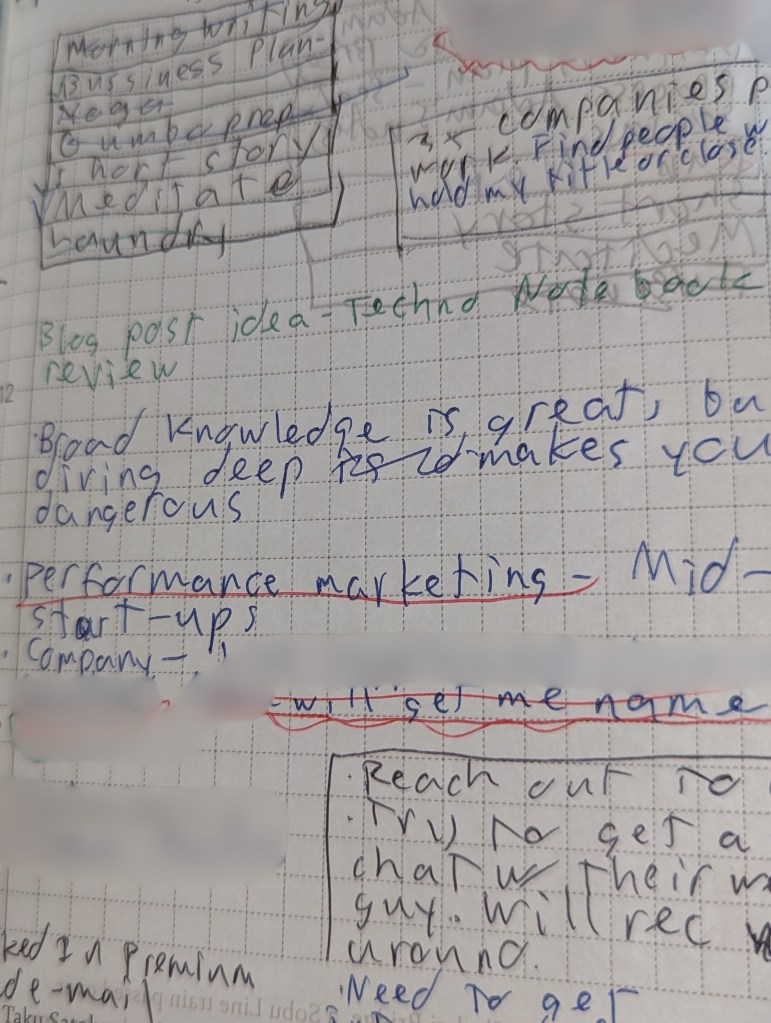 Morning writing
Bussiness Plan-
Yoga
Gumbo prep
Short story
Meditate
Laundry
3x companies p
work. Find people w
hold my title or close
Blog post idea - Techno Note book
review
12
Broad knowledge is great, bu
diving deep makes you
dangerous
· Performance marketing - Mid-
start-ups
· Company -
- will get me name
· Reach out to
· Try to get a
chat w/ their
guy. Will rec
around.
ked In Premium
de-mail
· Need to get
Sobu Line train
Taku